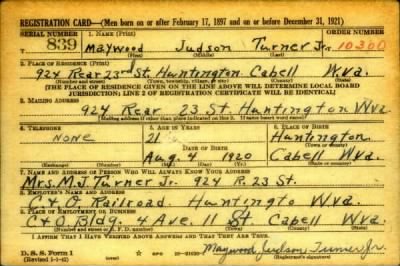 REGISTRATION CARD—(Men born on or after February 17, 1897 and on or before December 31, 1921)
SERIAL NUMBER 1. NAME (Print) ORDER NUMBER
839 Maywood Judson Turner Jr. 10300
(First) (Middle) (Last)
2. PLACE OF RESIDENCE (Print)
924 Rear 23rd St. Huntington Cabell W.va.
(Number and street) (Town, township, village, or city) (County) (State)
[THE PLACE OF RESIDENCE GIVEN ON THE LINE ABOVE WILL DETERMINE LOCAL BOARD
JURISDICTION; LINE 2 OF REGISTRATION CERTIFICATE WILL BE IDENTICAL]
3. MAILING ADDRESS
924 Rear 23 St. Huntington W.va
[Mailing address if other than place indicated on line 2. If same insert word same]
4. TELEPHONE 5. AGE IN YEARS 6. PLACE OF BIRTH
NONE 21 Huntington
DATE OF BIRTH (Town or county)
Aug. 4 1920 Cabell W.va.
(Exchange) (Number) (Mo.) (Day) (Yr.) (State or country)
7. NAME AND ADDRESS OF PERSON WHO WILL ALWAYS KNOW YOUR ADDRESS
Mrs. M.J. Turner Jr. 924 R. 23 St.
8. EMPLOYER'S NAME AND ADDRESS
C. & O. Railroad. Huntington W.va.
9. PLACE OF EMPLOYMENT OR BUSINESS
C & O Bldg. 4 Ave. 11 St. Cabell W.va.
(Number and street or R. F. D. number) (Town) (County) (State)
I AFFIRM THAT I HAVE VERIFIED ABOVE ANSWERS AND THAT THEY ARE TRUE.
D. S. S. Form 1 Maywood Judson Turner Jr.
(Revised 1-1-42) (Registrant's signature)